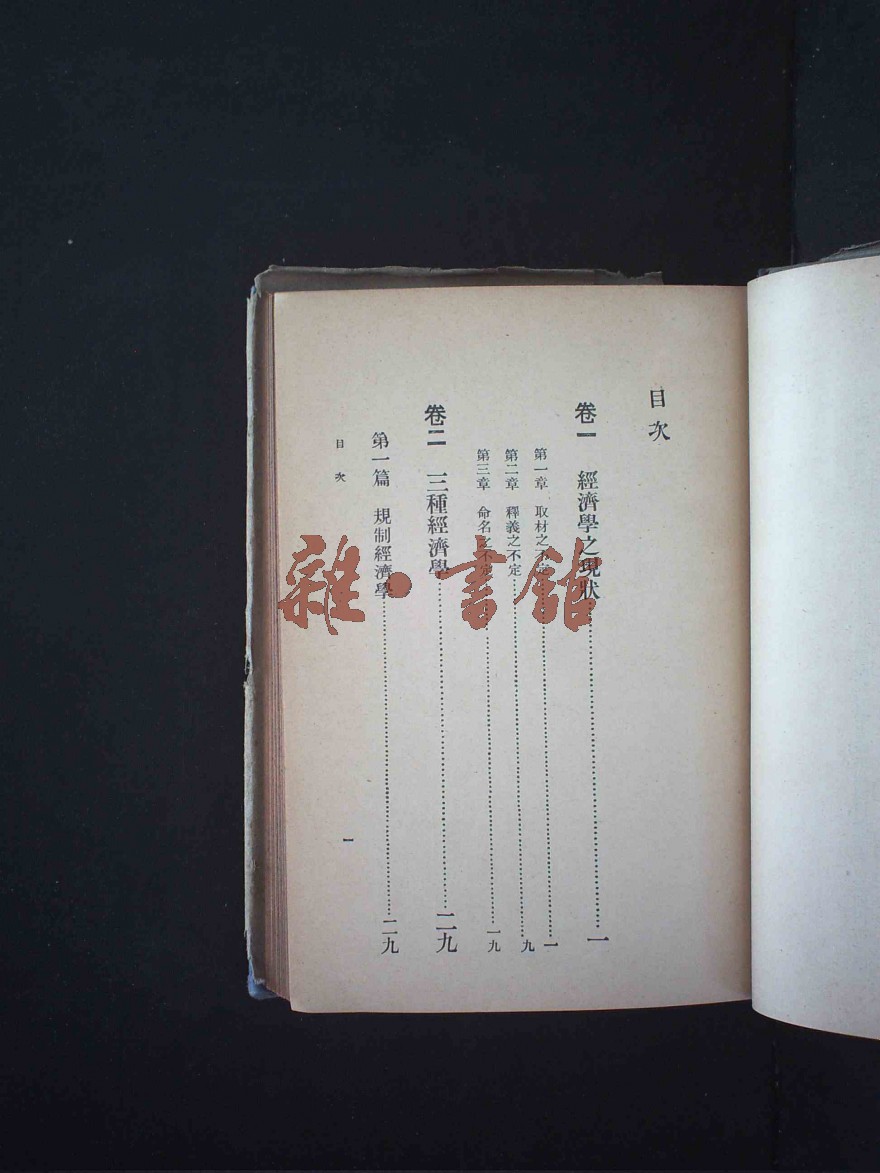 目次
卷一 經濟學之現狀……一
第一章 取材之不定……一
第二章 釋義之不定……九
第三章 命名之不定……一九
卷二 三種經濟學……二九
第一篇 規制經濟學……二九
目次 一
雜·書館